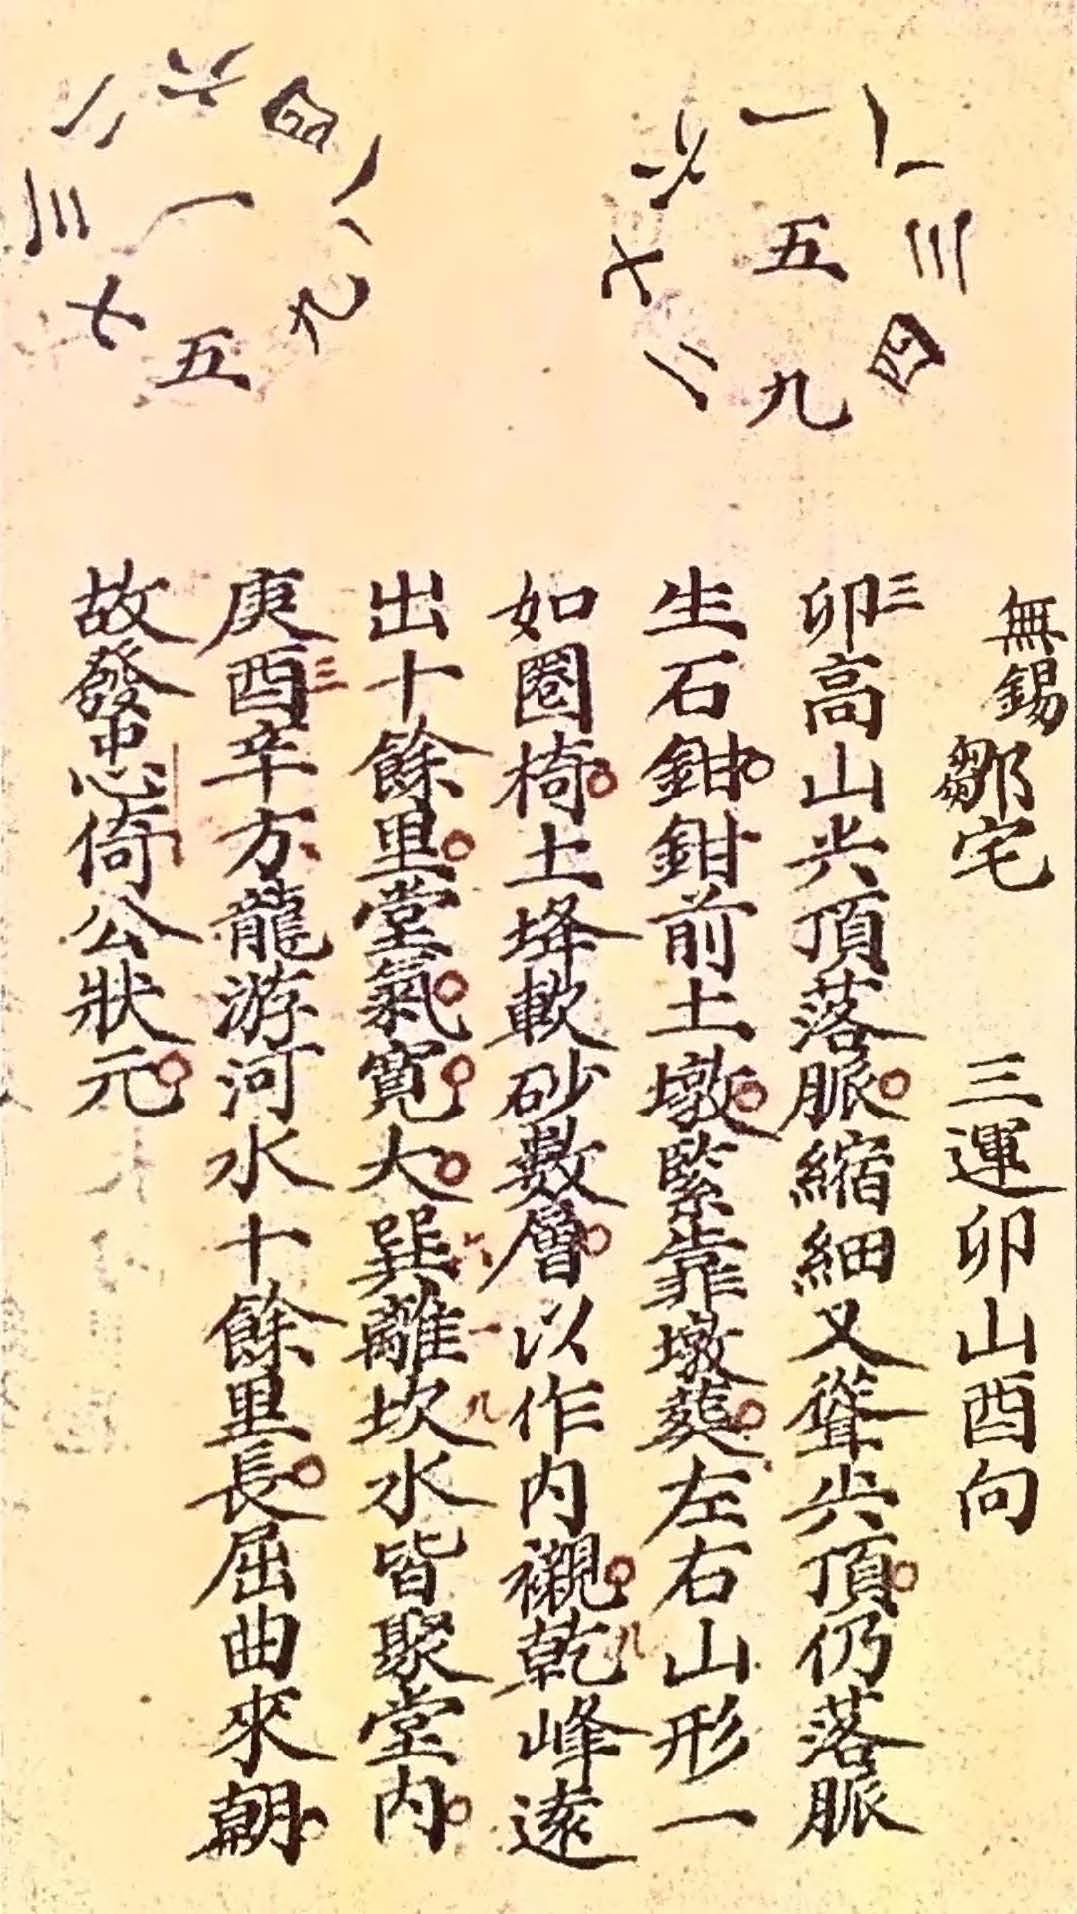 無錫鄒宅 三運卯山酉向
一
八
三
四
九
二
七
六
五
卯三高山尖頂落脈縮細又聳尖頂仍落脈
生石鉗鉗前土墩緊靠墩葬左右山形一
如圈椅土埄軟砂數層以作內襯乾八峰遠
出十餘里堂氣寬大巽六離一坎九水皆聚堂內
六
四
八
九
五
七
三
二
一
庚酉三辛方龍游河水十餘里長屈曲來朝
故發忠倚公狀元